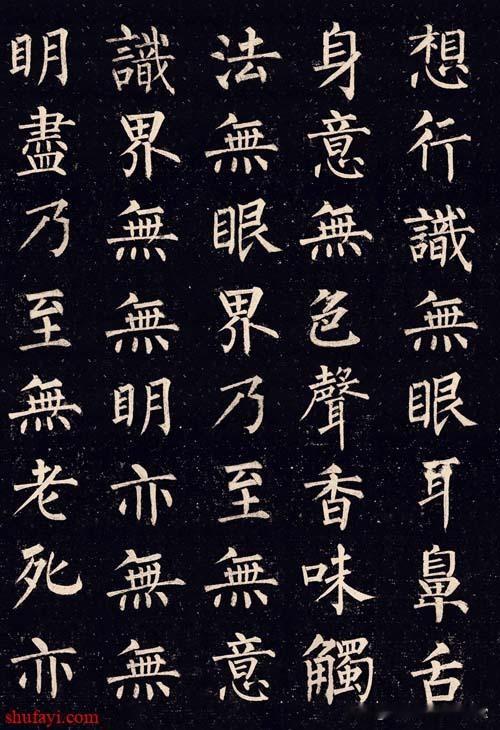 想行識無眼耳鼻舌
身意無色聲香味觸
法無眼界乃至無意
識界無無明亦無無
明盡乃至無老死亦
shufayi.com